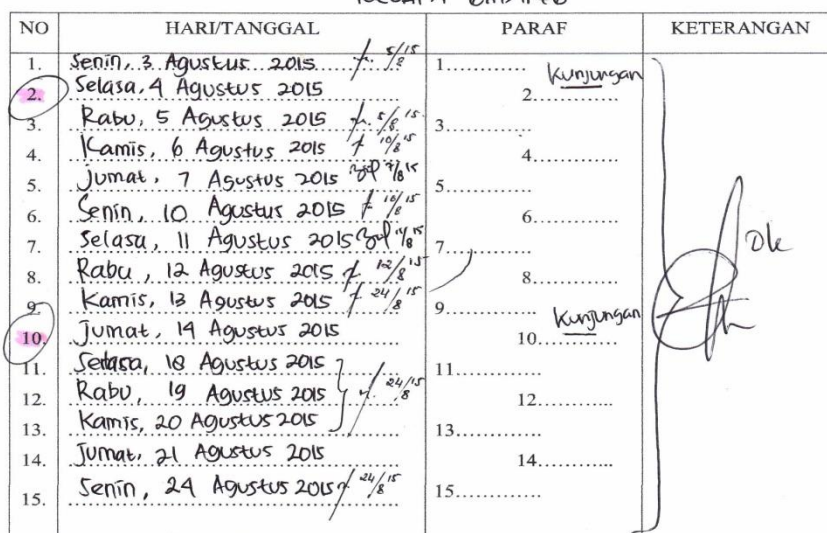 NO HARI/TANGGAL PARAF KETERANGAN
1. Senin, 3 Agustus 2015 5/8 15 1............
Kunjungan
2. Selasa, 4 Agustus 2015 2............
3. Rabu, 5 Agustus 2015 5/8 15 3............
4. Kamis, 6 Agustus 2015 10/8 15 4............
5. Jumat, 7 Agustus 2015 7/8 15 5............
6. Senin, 10 Agustus 2015 10/8 15 6............
7. Selasa, 11 Agustus 2015 11/8 15 7............
8. Rabu, 12 Agustus 2015 12/8 15 8............
9. Kamis, 13 Agustus 2015 24/8 15 9............
Kunjungan
10. Jumat, 14 Agustus 2015 10............
11. Selasa, 18 Agustus 2015 11............
12. Rabu, 19 Agustus 2015 24/8 15 12............
13. Kamis, 20 Agustus 2015 13............
14. Jumat, 21 Agustus 2015 14............
15. Senin, 24 Agustus 2015 24/8 15 15............